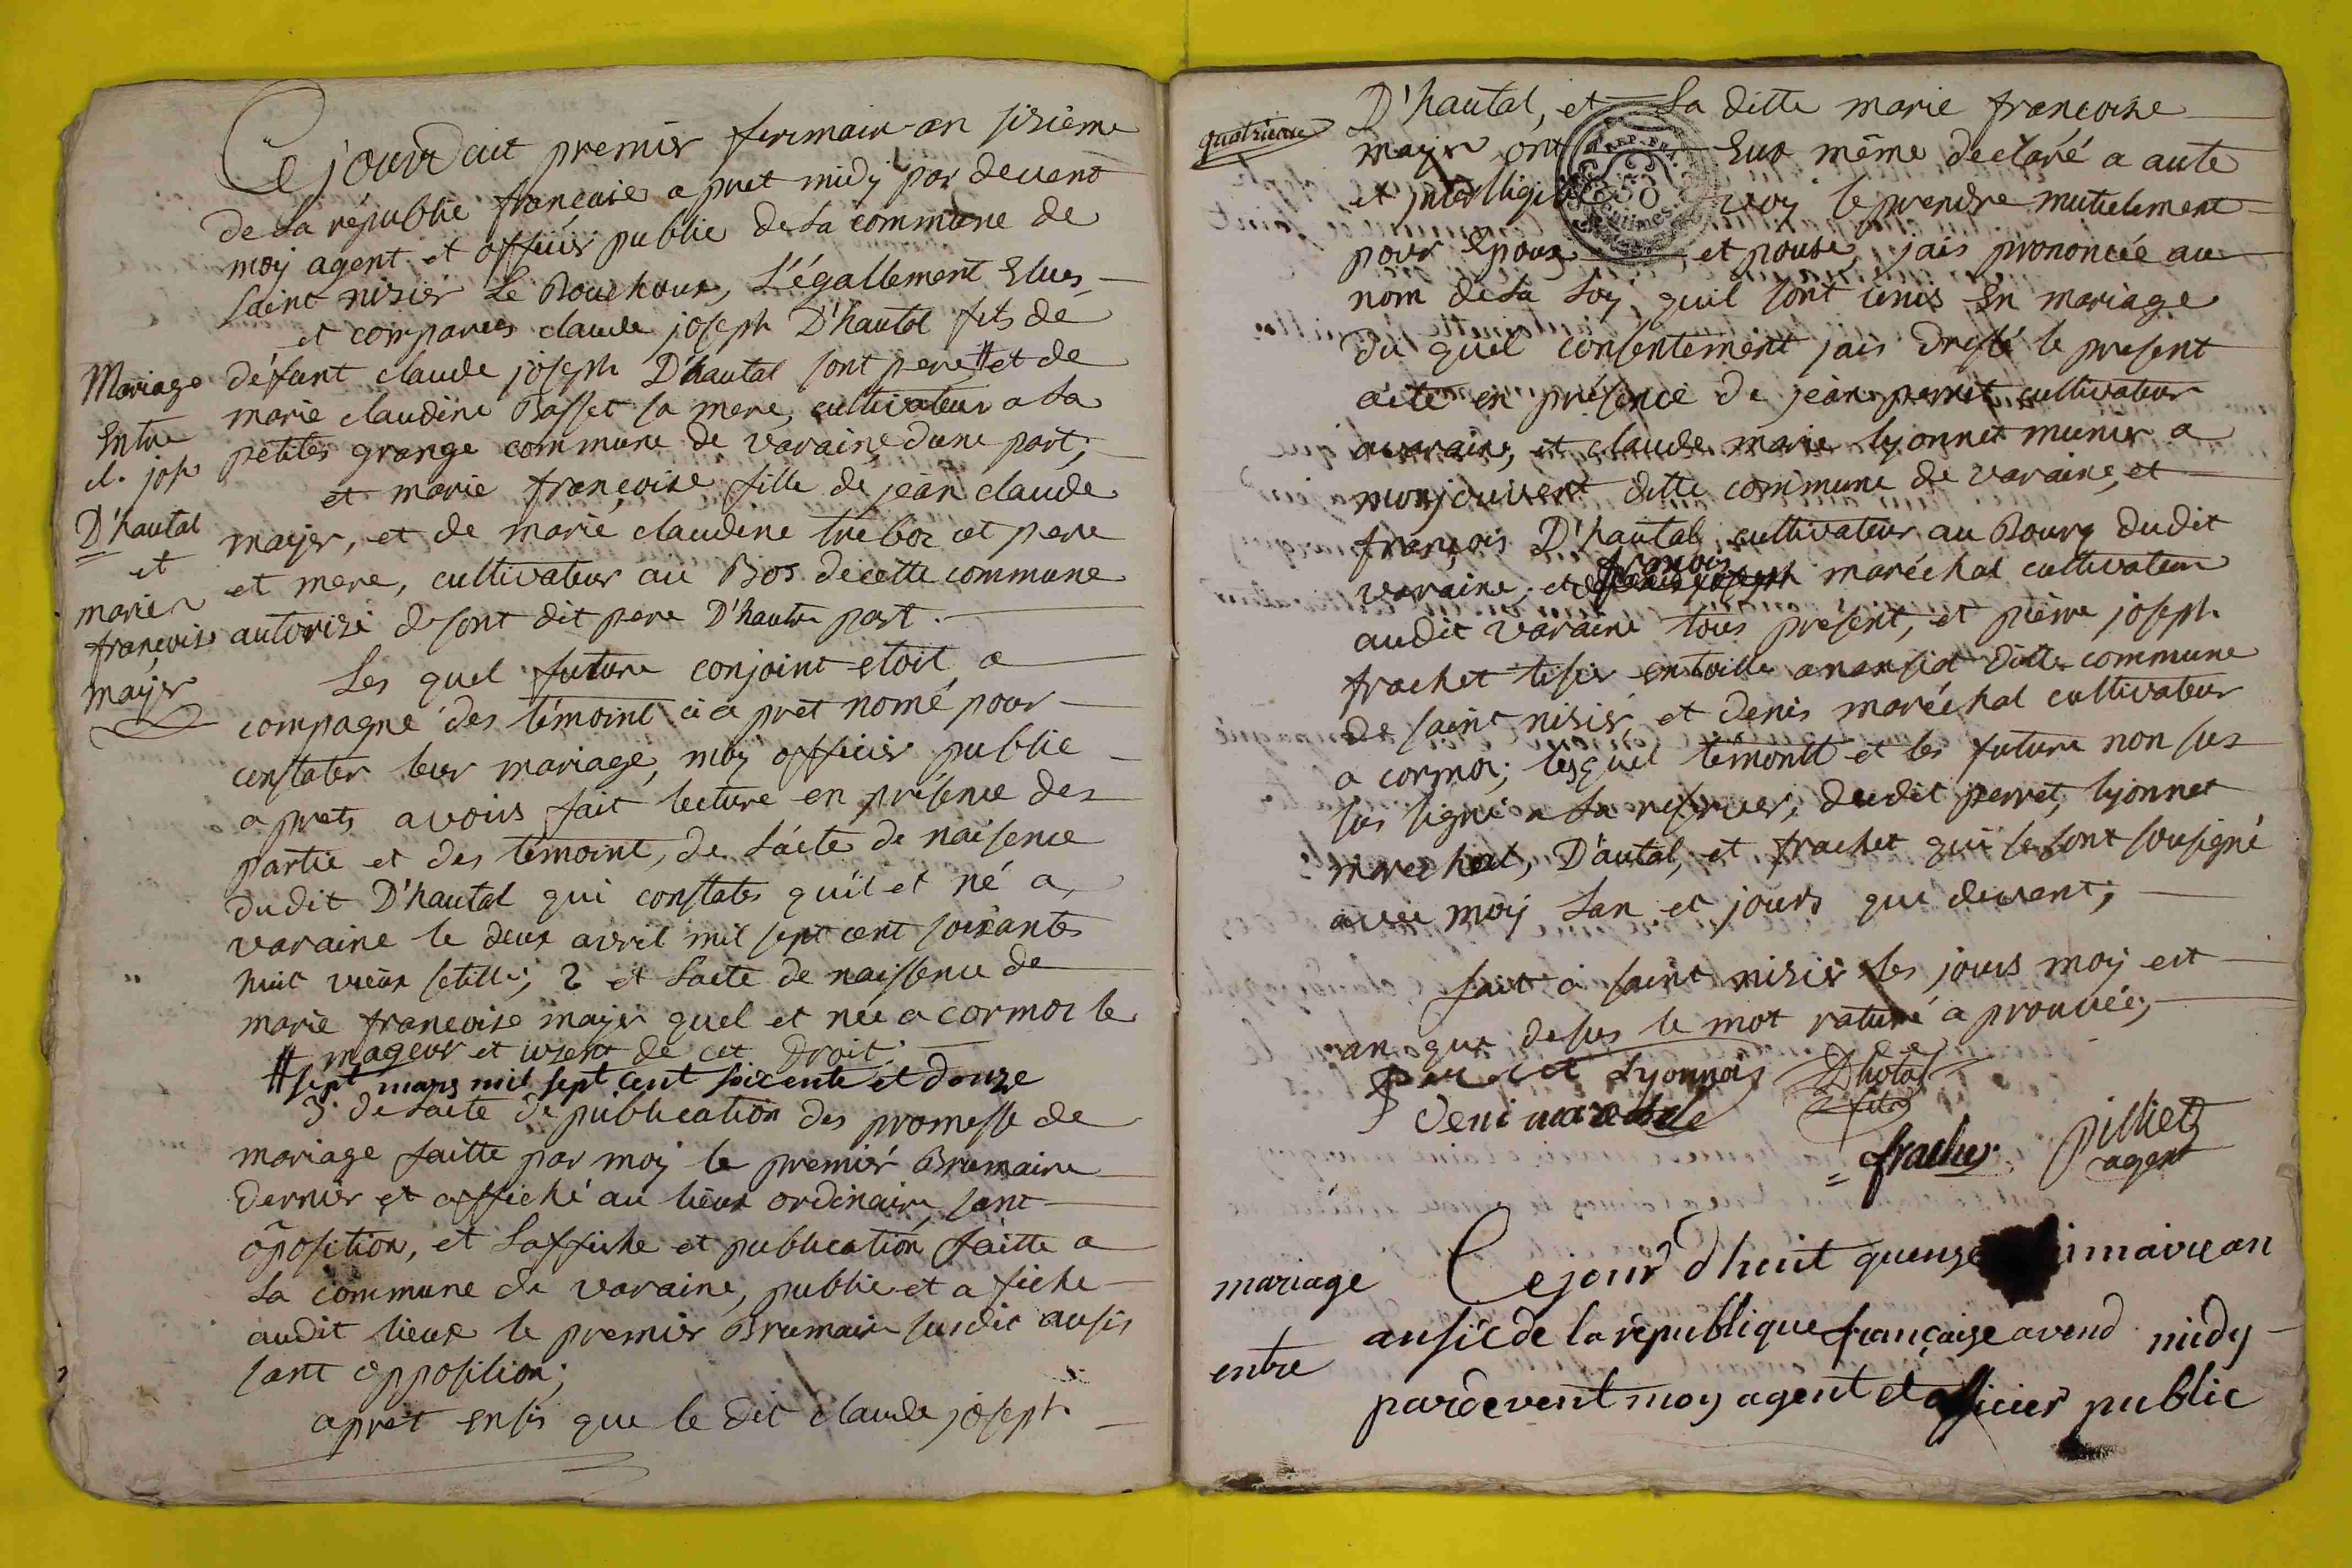 Ce jourdui premier frimair an sisième
de la républic françaises apret midy par devent
moy agent et officier public de la commune de
Saint nisier Le Bouchoux, L'égallement Elus
et comparus claude joseph D'hautal fils de
défunt claude joseph D'hautal sont pere # et de
marie claudine Basset sa mere, cultivateur a la
petites grange commune de varaine dune part;
et marie françoise fille de jean claude
mayer, et de marie claudine trebor et pere
et mere, cultivateur au Bos de cette commune
autorizé de sont dit pere D'hautre part.
Les quel future conjoint etoit a
compagné des témoint ci a pret nomé pour
constater leur mariage, moy officier public
aprets avoirs fait lecture en présence des
partie et des témoint, de L'acte de naisence
dudit D'hautal qui constates qu'il et né a
varaine le deux avril mil sept cent soixantes
huit vieux setille; 2 et Lacte de naissence de
marie françoise mayer quel et née a cormoz le
# mageur et uzent de cet Droit.
sept mars mil sept cent soicente et douze
3 de Lacte de publication des promesse de
mariage faitte par moy le premiér Brumaire
dernier et affiché au lieux ordinaire, sant
oposition, et Laffiche et publication faitte a
La commune de varaine, publie et a fiche
audit lieux le premier Brumaire susdit ausis
sant opposition;
apret ensis que le dit claude joseph
Mariage
Entre
cl. joph
D'hautal
et
marie
françoise
mayer
quatrieme
D'hautal, et La ditte marie françoise
mayer ont Eux même declaré a aute
et intelligible voy se prendre mutuelement
pour Epoux et pouse, jais prononcée au
nom de La Loy quil sont unis En mariage
du quel consentement jais dressé le present
acte en présence de jean perret cultivateur
a varaine, et claude marie lyonnet munier a
monjouvent ditte commune de varaine, et
françois D'hautal cultivateur au Bourg dudit
varaine, et françois maréchal cultivateur
audit varaine tous présent, et pierre joseph
frachet tisier en toille a ditte commune
de saint nisier, et denis maréchal cultivateur
a cormoz; lesquel témontt et les future non sus
sus signé a La reserver, dudit perret, lyonnet
marechal, D'autal, et frachet qui se sont sousigné
avec moy Lan et jours que devent;
fait a saint nisier les jours moy est
an que desus le mot raturé a prouvée,
Lyonnois Dhotal
fils
frachet pilliet
agent
mariage
entre
Ce jour d'huit quense imaire an
an sic de la république françaige avend midy
par devent moy agent et officier public